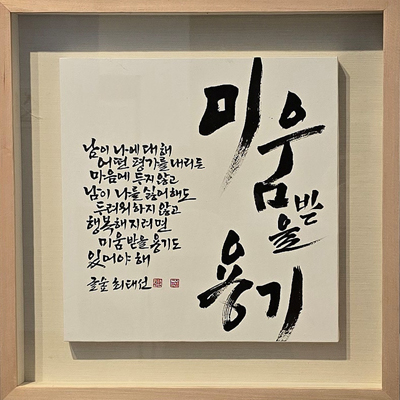 미움
받을
용기
남이 나에 대해
어떤 평가를 내리든
마음에 두지 않고
남이 나를 싫어해도
두려워하지 않고
행복해지려면
미움 받을 용기도
있어야 해
글숲 최태선